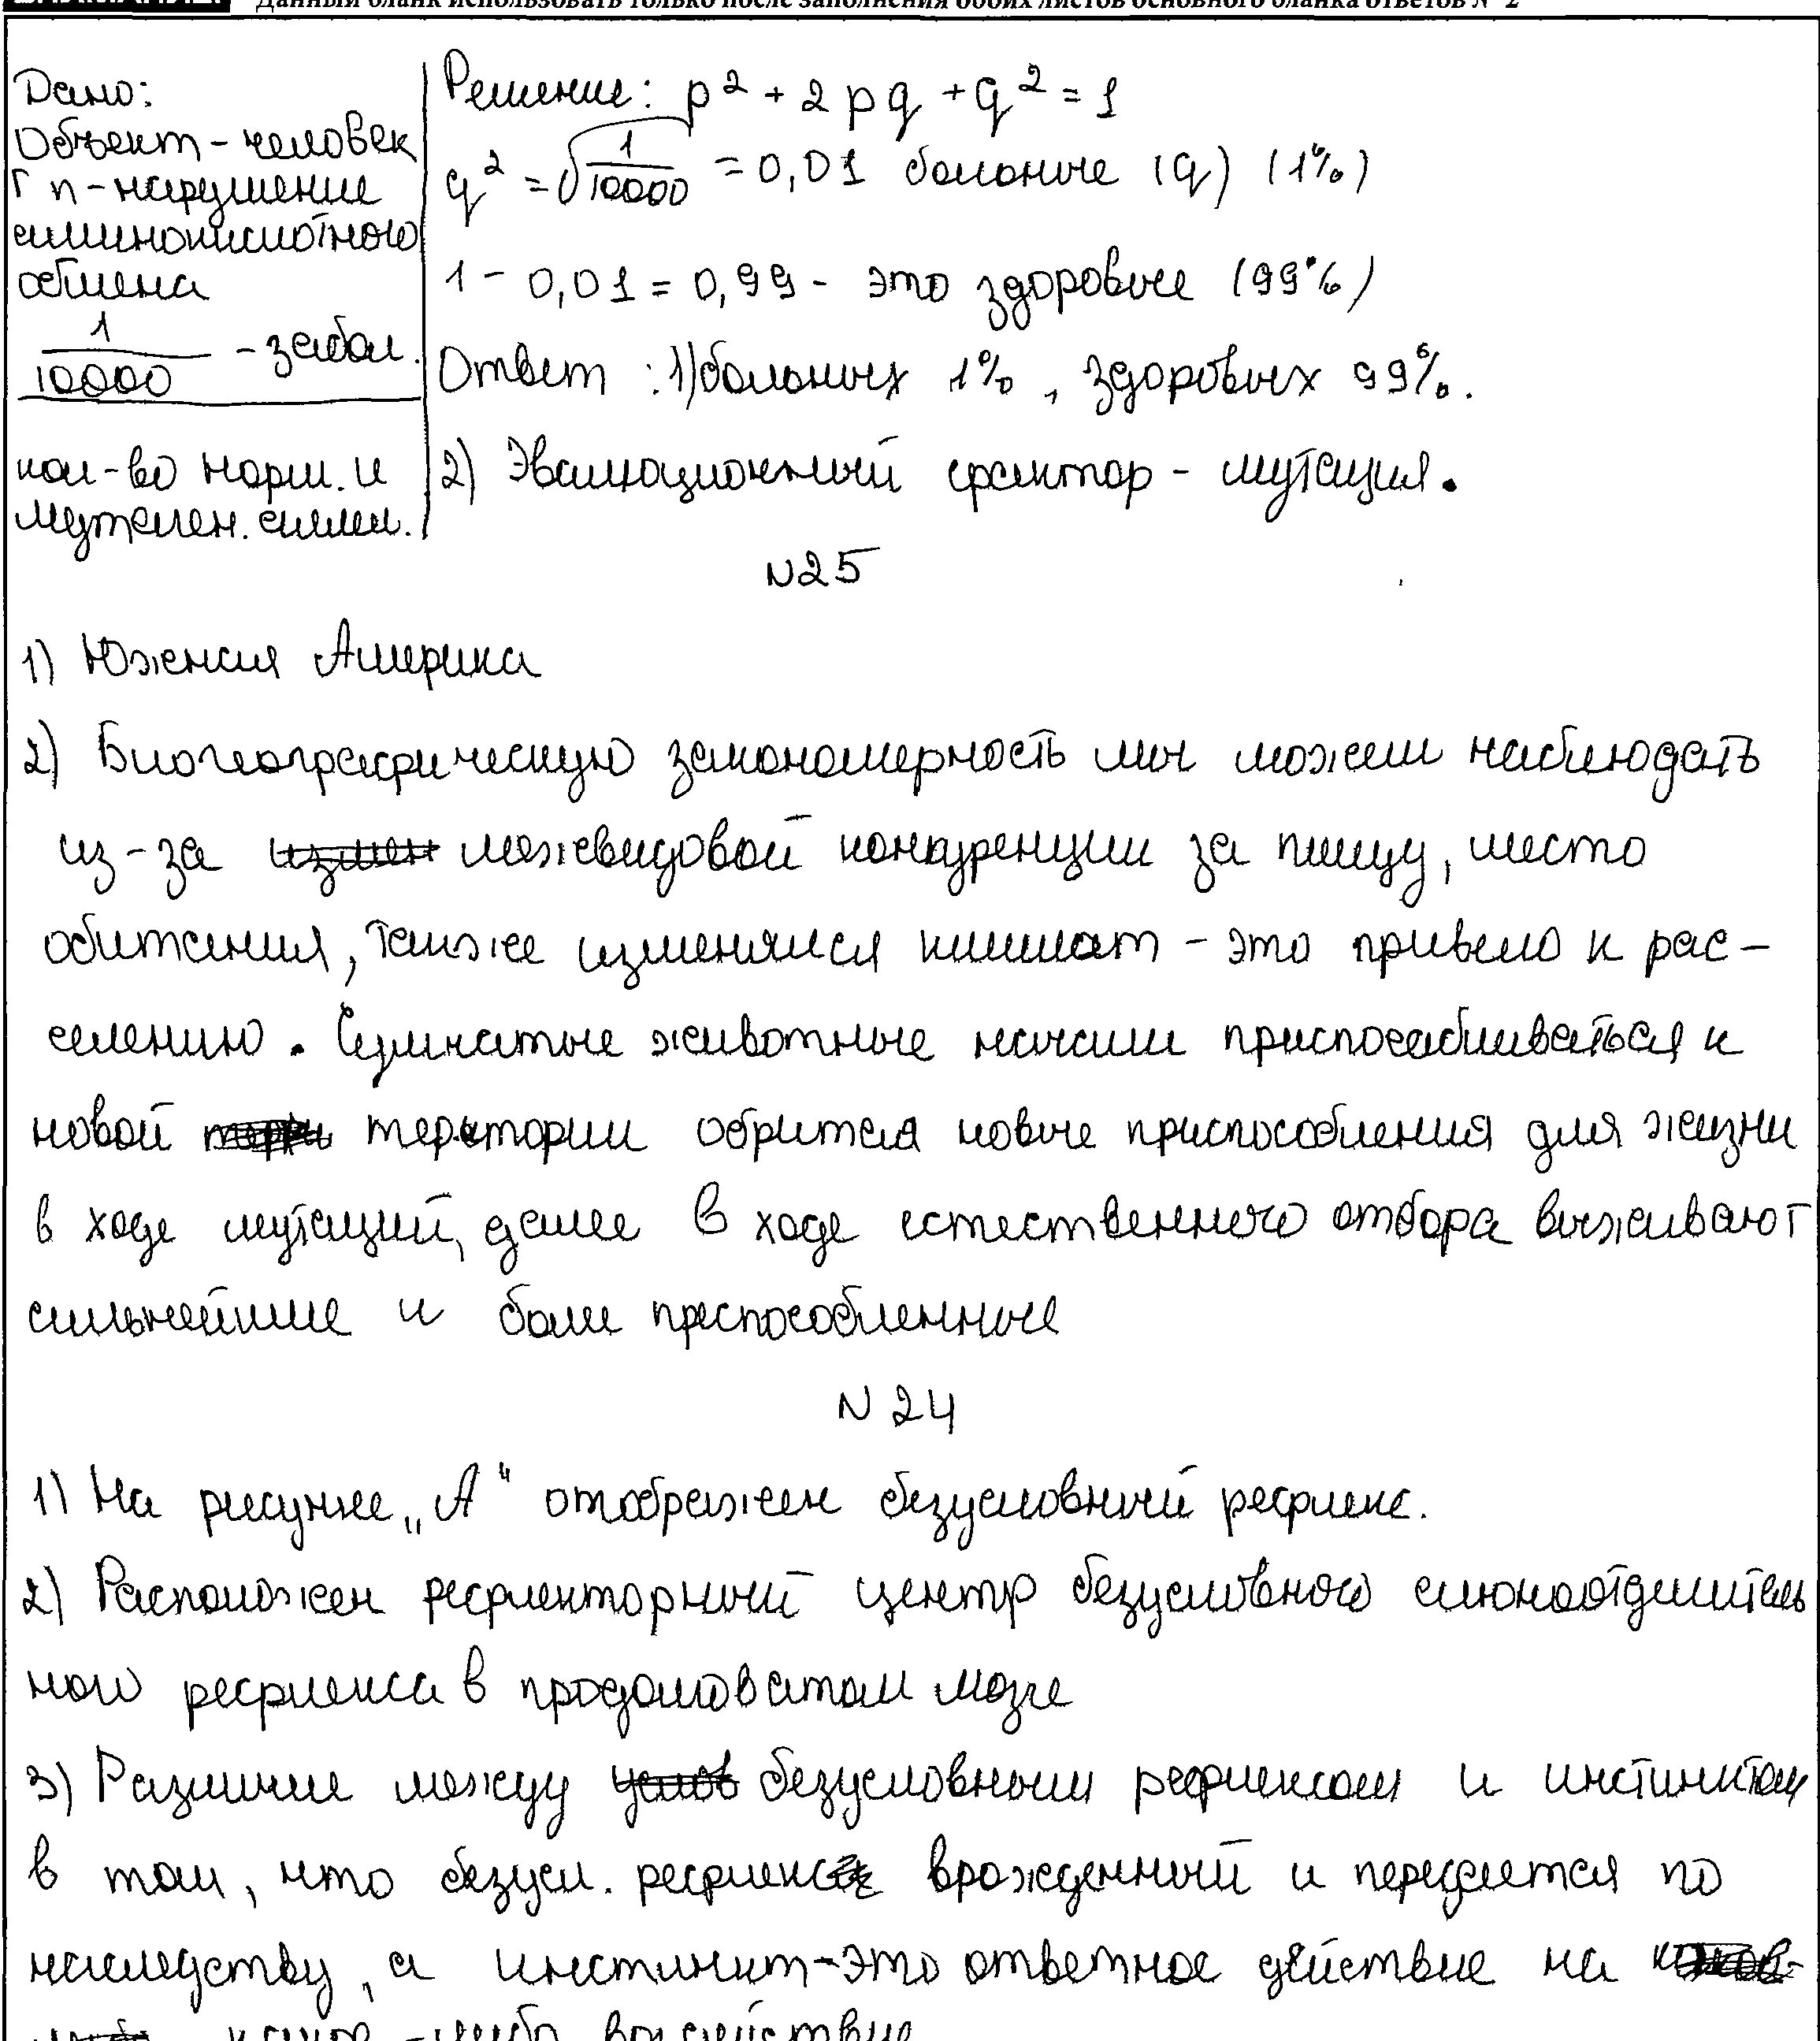 Данный бланк использовать только после заполнения обоих листов основного бланка ответов № 2
Дано:
Объект - человек
Г п - нарушение
аминокислотного
обмена
1/10000 - забол.
кол-во норм. и
мутаген. аллел.
Решение: p² + 2pq + q² = 1
q² = √1/10000 = 0,01 больные (q) (1%)
1 - 0,01 = 0,99 - это здоровые (99%)
Ответ: 1) больных 1%, здоровых 99%.
2) Эвалюционный фактор - мутация.
N25
1) Южная Америка
2) Биогеографическую закономерность мы можем наблюдать
из-за межвидовой конкуренции за пищу, место
обитания, также изменялся климат - это привело к рас-
селению. Сумчатые животные начали приспосабливаться к
новой теретории обрития новые приспособления для жизни
в ходе мутаций, далее в ходе естественного отбора выживают
сильнейшие и боле приспособленные
N 24
1) На рисунке „А“ отображен безусловный рефлекс.
2) Расположен рефлекторный центр безусловного слюноотделитель
ного рефлекса в продолговатом мозге
3) Различие между безусловным рефлексом и инстинктом
в том, что безусл. рефлекс врожденный и передается по
наследству, а инстинкт - это ответное действие на
какое-либо воздействие